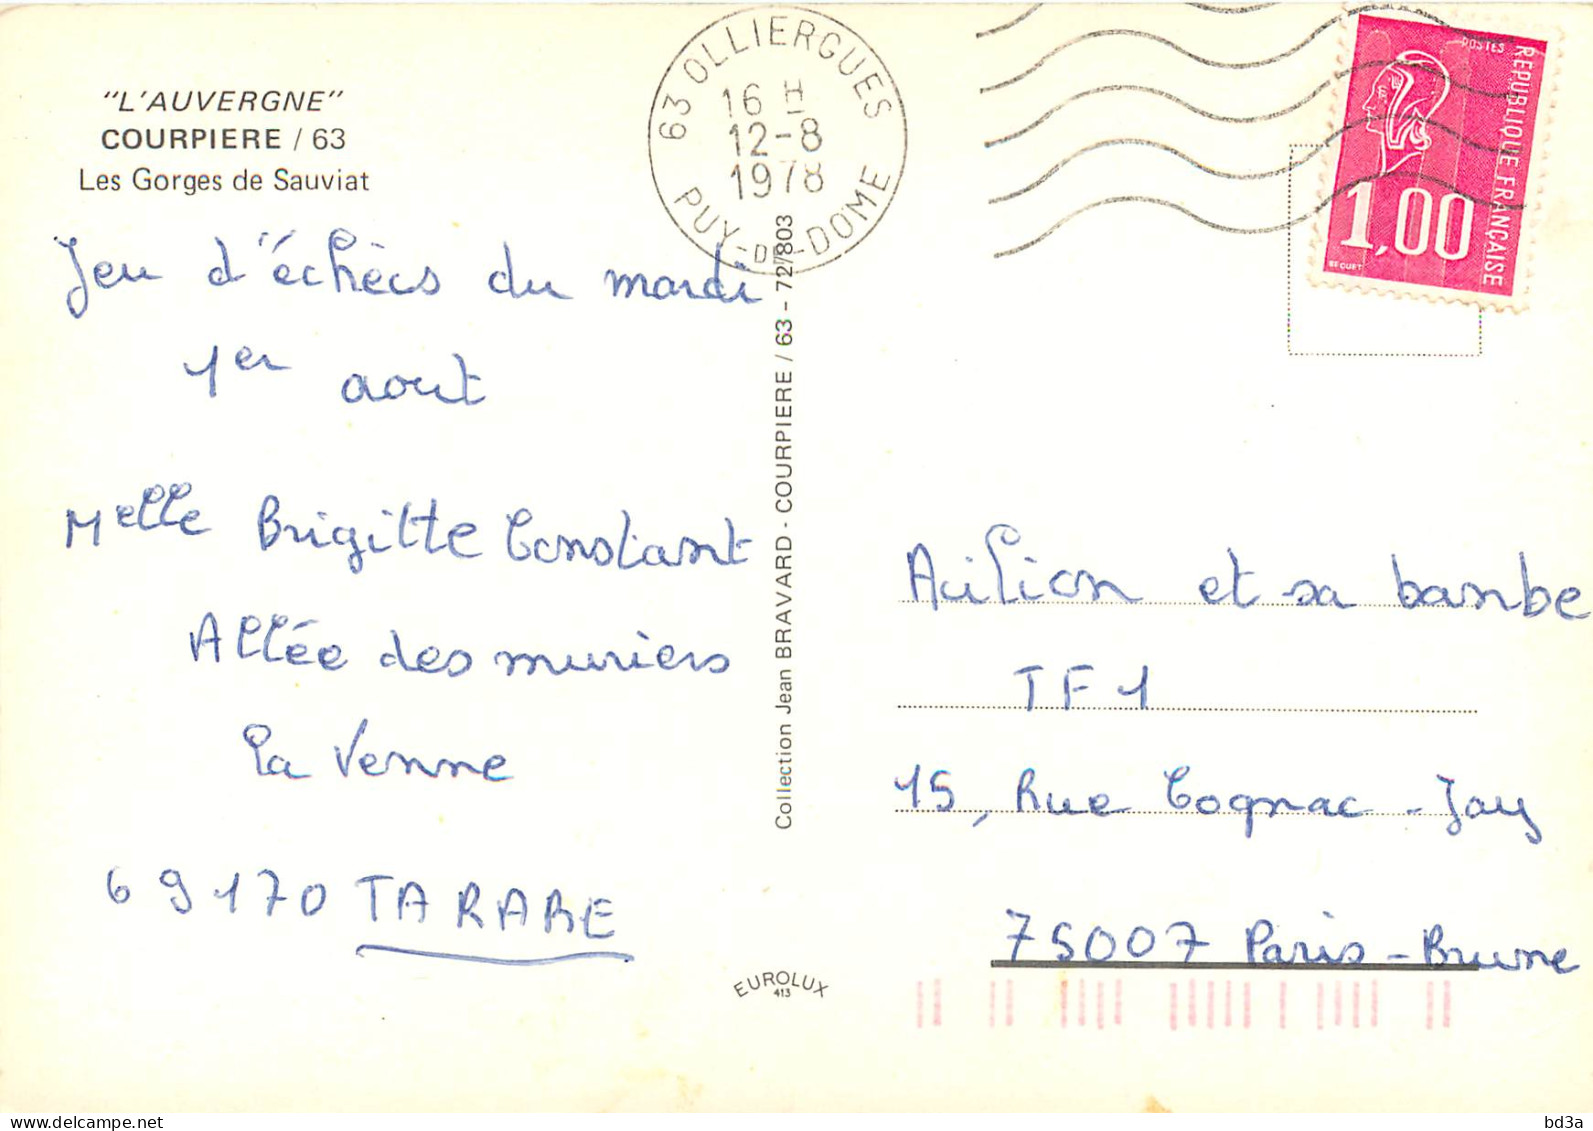 "L'AUVERGNE"
COURPIERE / 63
Les Gorges de Sauviat
Jeu d'échecs du mardi
1er aout
Melle Brigitte Constant
Allée des muriers
La Venne
69170 TARARE
63 OLLIERGUES
16 H
12-8
1978
PUY-DE-DOME
Collection Jean BRAVARD - COURPIERE / 63 - 72/803
EUROLUX
413
POSTES
REPUBLIQUE FRANÇAISE
1,00
BEQUET
Acilion et sa bambe
TF1
15, Rue Cognac-Jay
75007 Paris-Brune
bd3a